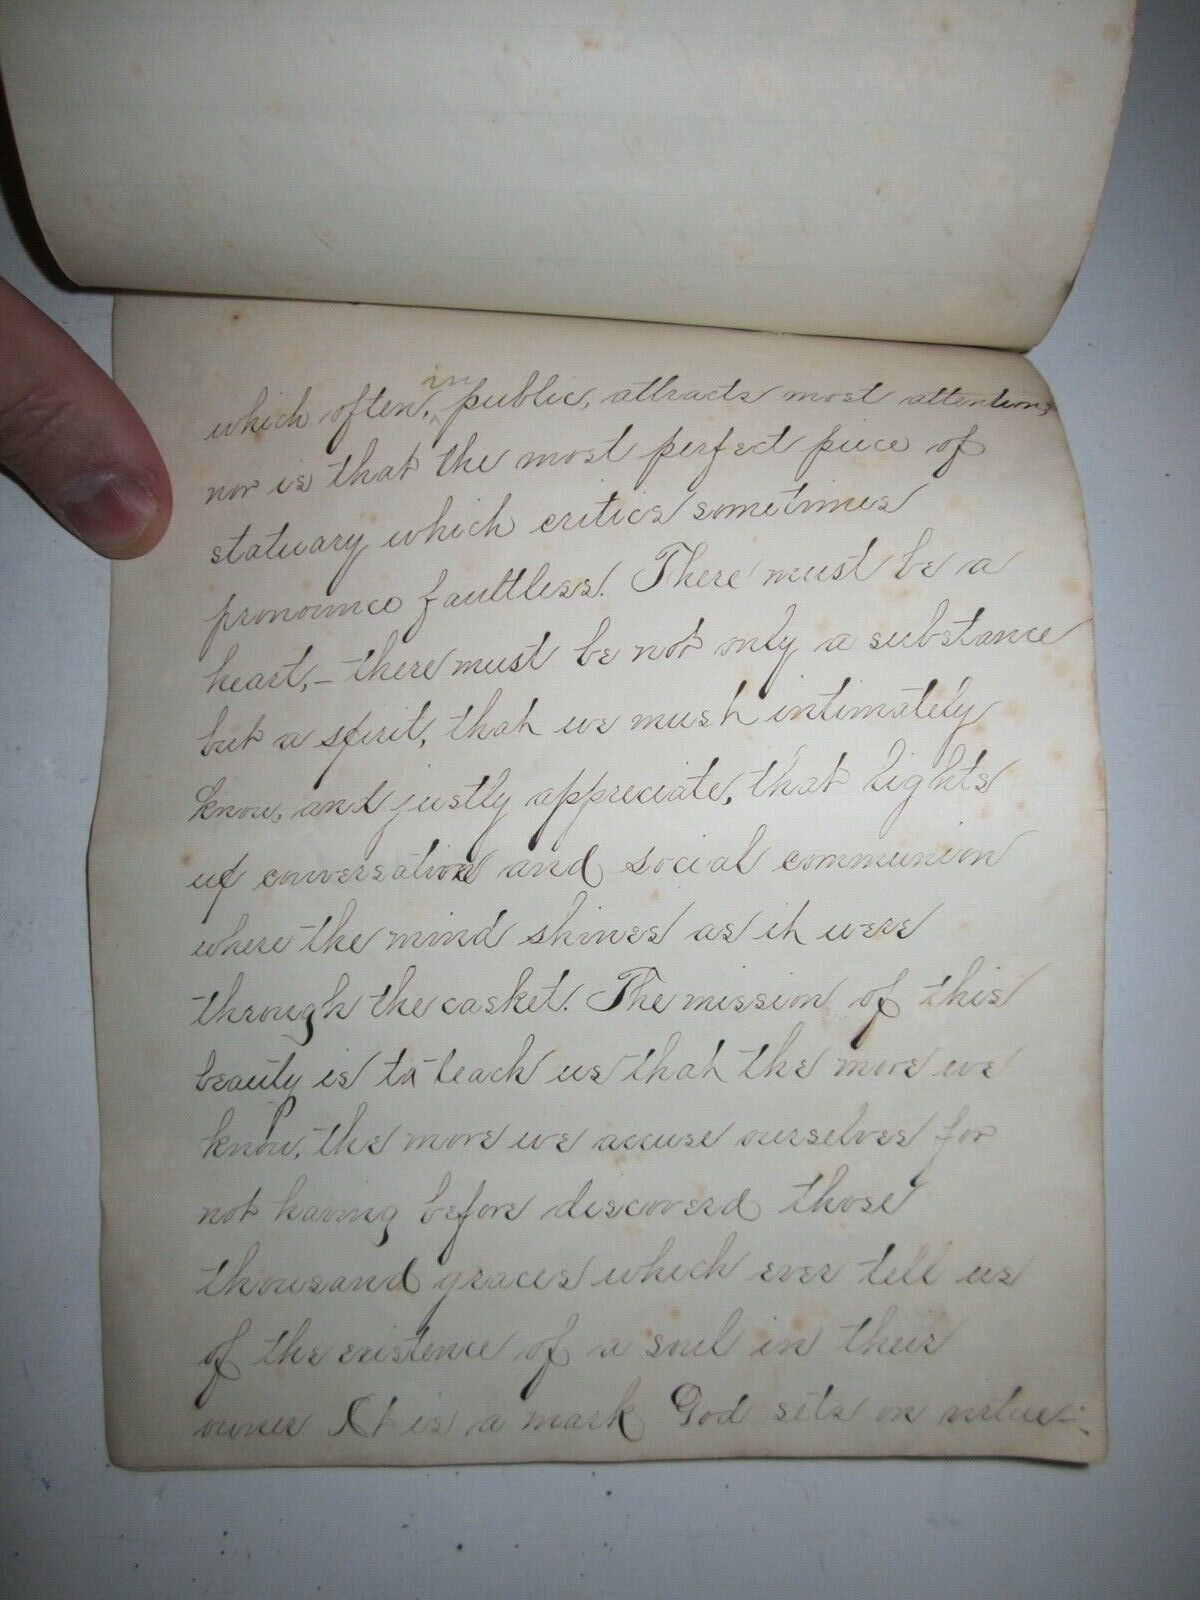 which often, in public, attracts most attention;
nor is that the most perfect piece of
statuary which critics sometimes
pronounce faultless. There must be a
heart,— there must be not only a substance
but a spirit, that we must intimately
know, and justly appreciate, that lights
up conversation and social communion
where the mind shines as it were
through the casket. The mission of this
beauty is to teach us that the more we
know, the more we accuse ourselves for
not having before discoverd those
thousand graces which ever tell us
of the existence of a soul in their
owner It is a mark God sets on virtue—